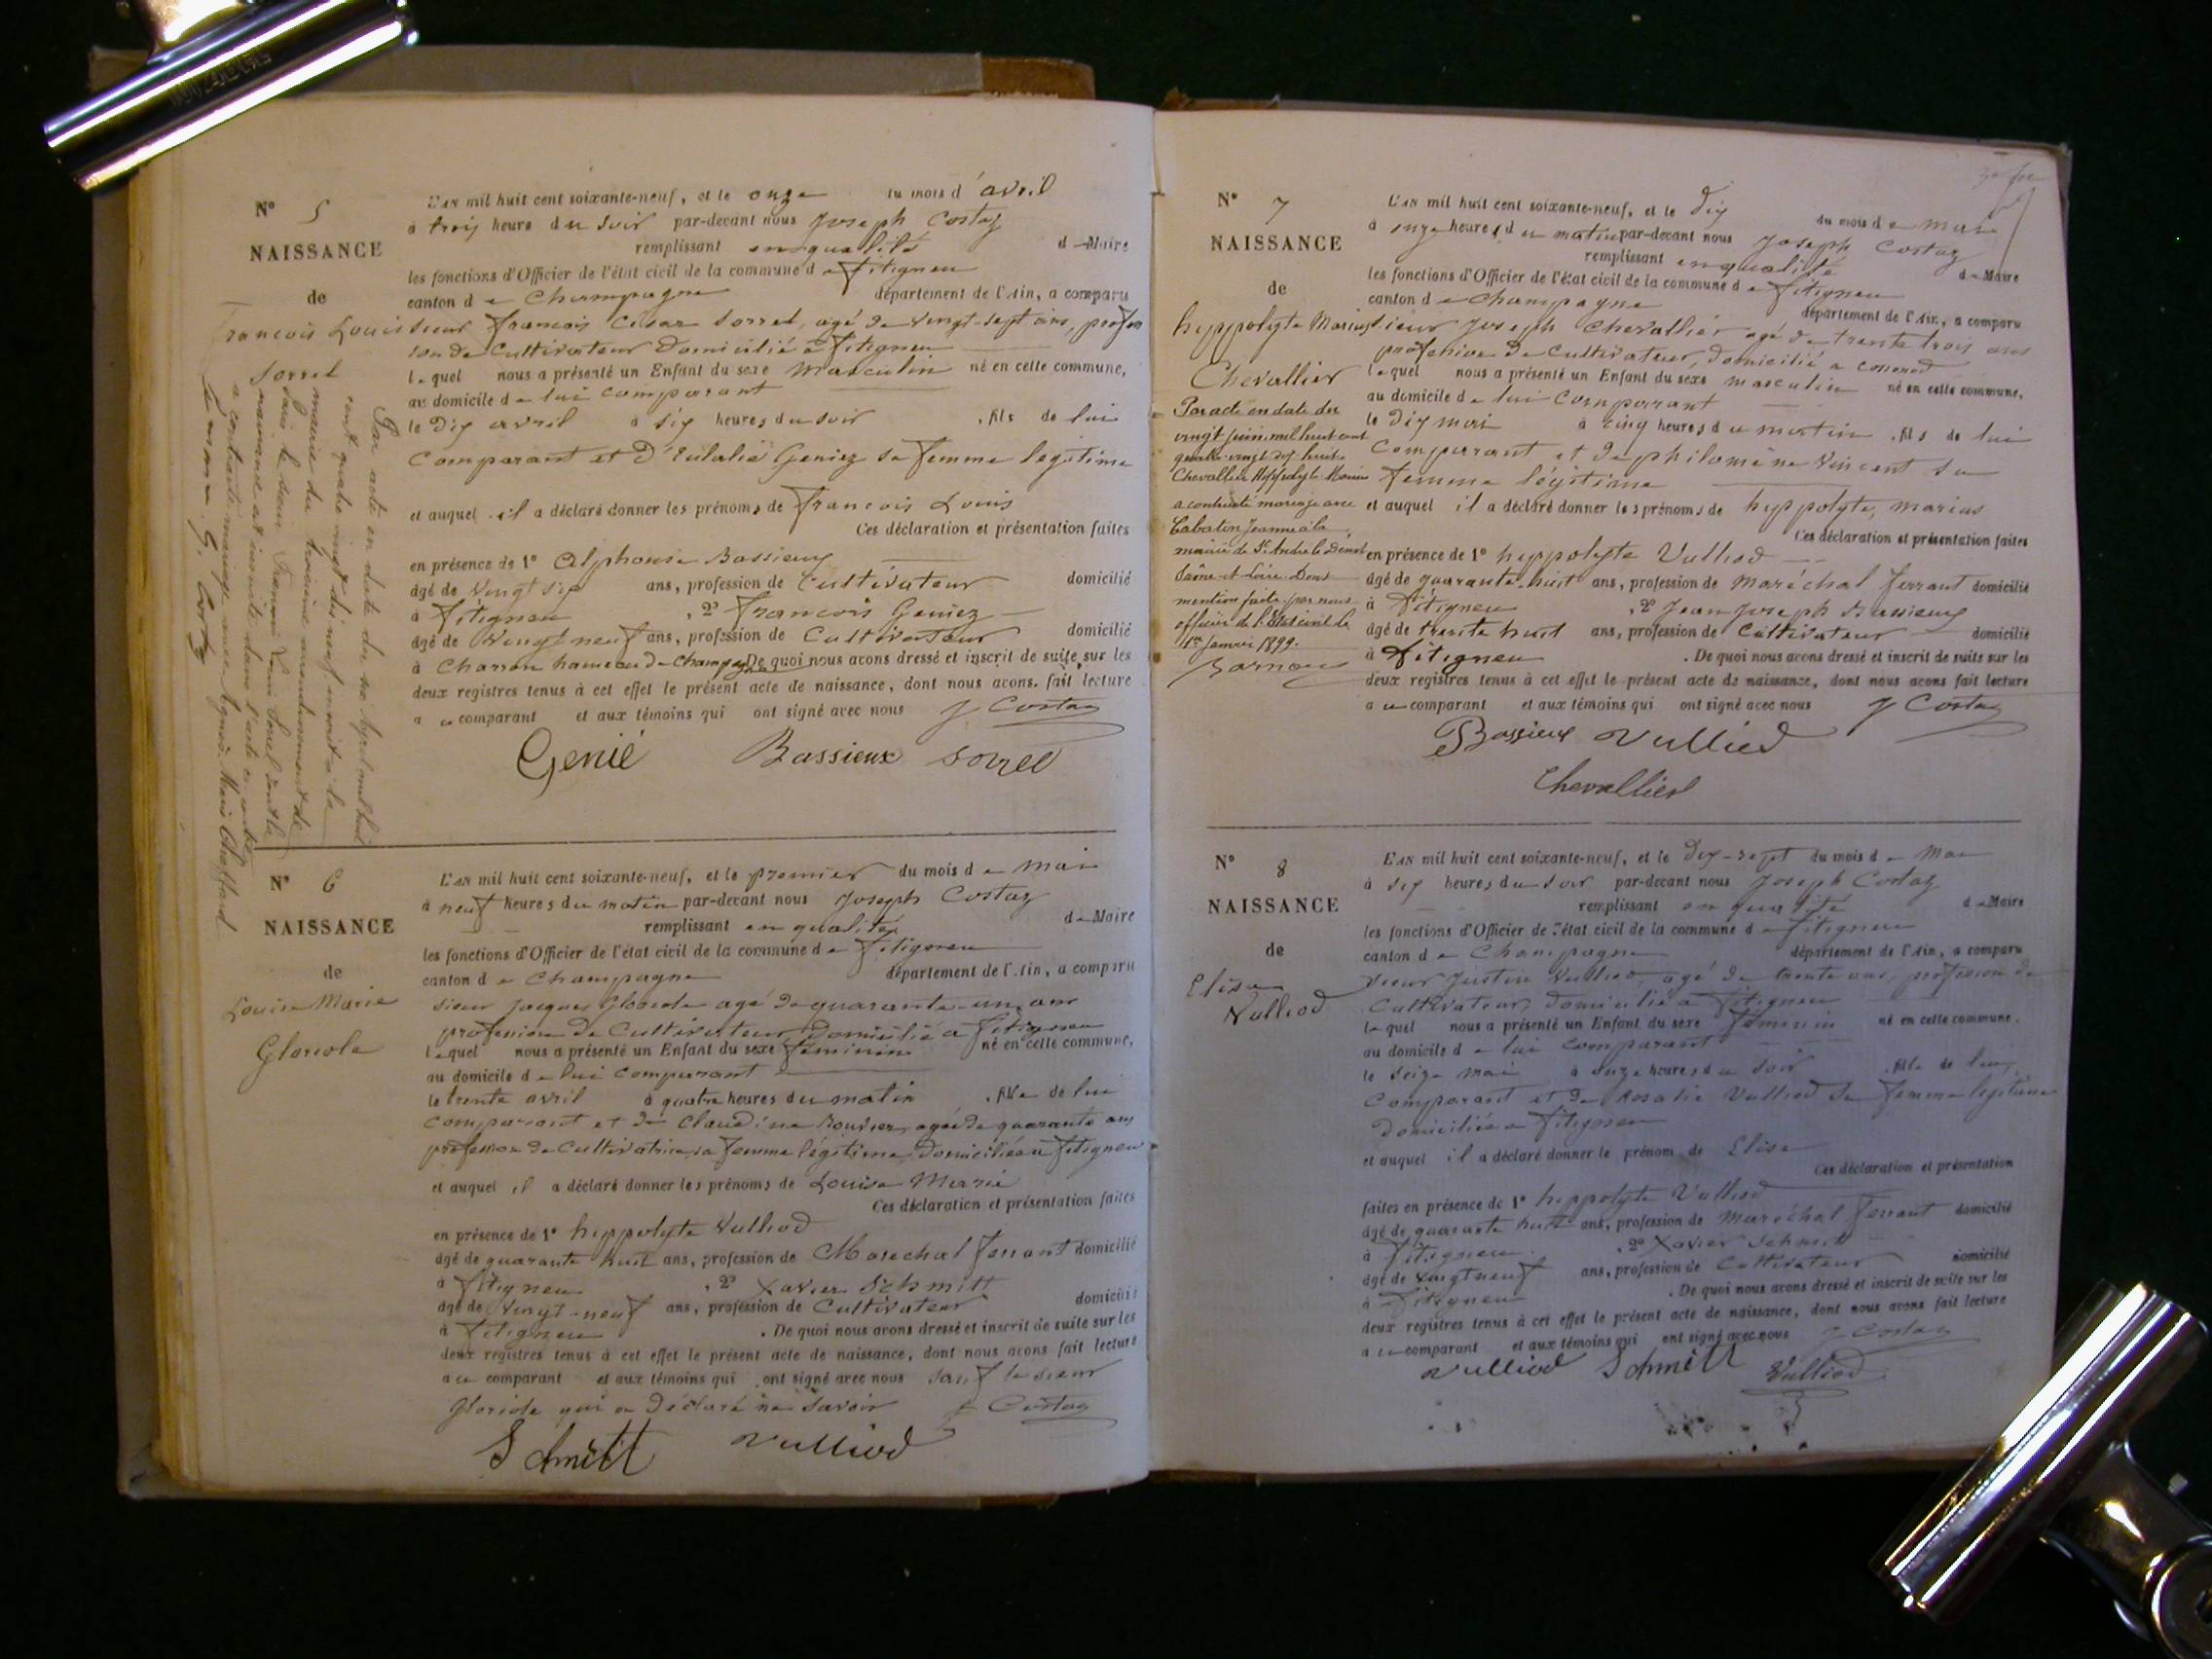 N° 5
NAISSANCE
de
François Louis
Sorrel
L'AN mil huit cent soixante-neuf, et le onze du mois d'avril
à trois heures du soir par-devant nous Joseph Costaz
remplissant en qualité de Maire
les fonctions d'Officier de l'état civil de la commune de Fitignieu
canton de Champagne département de l'Ain, a comparu
sieur François César Sorrel, agé de vingt-sept ans, profes
sion de Cultivateur domicilié à Fitignieu
lequel nous a présenté un Enfant du sexe Masculin né en cette commune,
au domicile de lui comparant
le dix avril à six heures du soir , fils de lui
Comparant et d'Eulalie Geniez sa femme légitime
et auquel il a déclaré donner les prénoms de François Louis
Ces déclaration et présentation faites
en présence de 1° Alphonse Bassieux
âgé de vingt six ans, profession de Cultivateur domicilié
à Fitignieu , 2° François Geniez
âgé de vingt neuf ans, profession de Cultivateur domicilié
à Charron hameau de Champagne De quoi nous avons dressé et inscrit de suite sur les
deux registres tenus à cet effet le présent acte de naissance, dont nous avons fait lecture
au comparant et aux témoins qui ont signé avec nous J Costaz
Genié Bassieux Sorrel
Par acte en date du
cent quatre vingt dix neuf, inscrit à la
mairie du troisième arrondissement de
Paris le sieur François Louis Sorrel dont la
naissance est inscrite dans l'acte ci contre
a contracté mariage avec
N° 6
NAISSANCE
de
Louise Marie
Gloriole
L'AN mil huit cent soixante-neuf, et le premier du mois de mai
à neuf heures du matin par-devant nous Joseph Costaz
remplissant en qualité de Maire
les fonctions d'Officier de l'état civil de la commune de Fitignieu
canton de Champagne département de l'Ain, a comparu
sieur Jacques Gloriole agé de quarante-un ans
profession de Cultivateur, domicilié à Fitignieu
lequel nous a présenté un Enfant du sexe féminin né en cette commune,
au domicile de lui comparant
le trente avril à quatre heures du matin , fille de lui
comparant et de Claudine Bouvier, agée de quarante ans
profession de Cultivatrice, sa femme légitime, domiciliée à Fitignieu
et auquel il a déclaré donner les prénoms de Louise Marie
Ces déclaration et présentation faites
en présence de 1° hyppolyte Vulliod
âgé de quarante huit ans, profession de Marechal ferrant domicilié
à Fitignieu , 2° Xavier Schmitt
âgé de vingt-neuf ans, profession de Cultivateur domicilié
à Fitignieu . De quoi nous avons dressé et inscrit de suite sur les
deux registres tenus à cet effet le présent acte de naissance, dont nous avons fait lecture
au comparant et aux témoins qui ont signé avec nous sauf le sieur
Gloriole qui a déclaré ne savoir J Costaz
Schmitt Vulliod
N° 7
NAISSANCE
de
hyppolyte Marius
Chevallier
Par acte en date du
vingt juin mil huit cent
quatre-vingt dix huit
Chevallier Hippolyte Marius
a contracté mariage avec
Cabaton Jeanne à la
mairie de St André le Désert
Saône-et-Loire. Dont
mention faite par nous
officier de l'état civil le
1er Janvier 1899.
L'AN mil huit cent soixante-neuf, et le dix du mois de mai
à onze heures du matin par-devant nous Joseph Costaz
remplissant en qualité de Maire
les fonctions d'Officier de l'état civil de la commune de Fitignieu
canton de Champagne département de l'Ain, a comparu
sieur Joseph Chevallier agé de trente trois ans
profession de Cultivateur, domicilié a
lequel nous a présenté un Enfant du sexe masculin né en cette commune,
au domicile de lui comparant
le dix mai à cinq heures du matin , fils de lui
Comparant et de philomène Vincent sa
femme légitime
et auquel il a déclaré donner les prénoms de hyppolyte, marius
Ces déclaration et présentation faites
en présence de 1° hyppolyte Vulliod
âgé de quarante-huit ans, profession de Maréchal ferrant domicilié
à Fitignieu , 2° Jean Joseph Bassieux
âgé de trente huit ans, profession de Cultivateur domicilié
à Fitignieu . De quoi nous avons dressé et inscrit de suite sur les
deux registres tenus à cet effet le présent acte de naissance, dont nous avons fait lecture
au comparant et aux témoins qui ont signé avec nous J Costaz
Bassieux Vulliod
Chevallier
N° 8
NAISSANCE
de
Elisa
Vulliod
L'AN mil huit cent soixante-neuf, et le dix-sept du mois de Mai
à six heures du soir par-devant nous Joseph Costaz
remplissant en qualité de Maire
les fonctions d'Officier de l'état civil de la commune de Fitignieu
canton de Champagne département de l'Ain, a comparu
sieur Justin Vulliod, agé de trente ans, profession de
Cultivateur, domicilié à Fitignieu
lequel nous a présenté un Enfant du sexe féminin né en cette commune.
au domicile de lui comparant
le seize mai à onze heures du soir , fille de lui
Comparant et de Rosalie Vulliod sa femme légitime
domiciliée à Fitignieu
et auquel il a déclaré donner le prénom de Elisa
Ces déclaration et présentation
faites en présence de 1° hyppolyte Vulliod
âgé de quarante huit ans, profession de Maréchal ferrant domicilié
à Fitignieu , 2° Xavier Schmitt
âgé de vingt neuf ans, profession de Cultivateur domicilié
à Fitignieu . De quoi nous avons dressé et inscrit de suite sur les
deux registres tenus à cet effet le présent acte de naissance, dont nous avons fait lecture
au comparant et aux témoins qui ont signé avec nous J Costaz
Vulliod Schmitt Vulliod